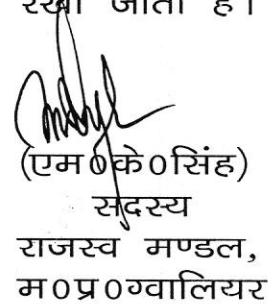 रखा जाता है।
(एम0के0सिंह)
सदस्य
राजस्व मण्डल,
म0प्र0ग्वालियर